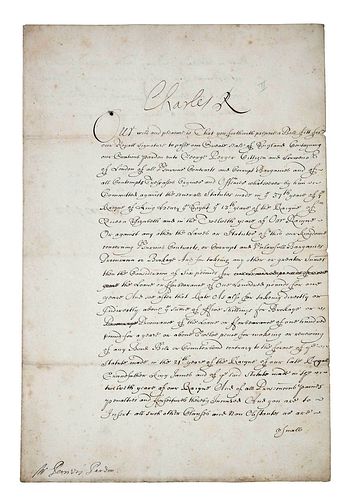 Charles R
Our will and pleasure is That you forthwith prepare a Bill fitt for
our Royall signature to passe our Greate Seale of England Containing
our Gratious Pardon unto George Perryer Cittizen and
of London of all Usurious Contracts and Corrupt Bargaines and of
all Contempts Trespasses Crymes and Offences whatsoever by him
Committed against the severall Statutes made in ye 37th yeare of ye
Raigne of King Henry ye Eight ye 13th yeare of the Raigne of
Queen Elizabeth and in the Twelveth yeare of Our Raigne
Or against any other the Lawes or Statutes of this our Kingdome
concerning Usurious Contracts, or Corrupt and Unlawfull Bargaines
or Brokage And for taking any other or greater Summe
then the Consideracon of six pounds for
the Loane or Forbearance of One hundred pounds for one
yeare And soe after that Rate As also for taking directly or
Indirectly above ye Summe of five Shillings for Brokage or
of the Loane or Forbearance of one hundred
pound for a yeare or above Twelve pence for making or renewing
of any Bond Bill or Counterbond contrary to the forme of ye
Statute made in the 21th yeare of the Raigne of our late Royall
Grandfather King James and of ye said Statute made in the
twelveth yeare of our Raigne And of all Punishments paines
penalties and Forfeitures thereby Incurred And you are to
Insert all such other Clauses and Non Obstantes as are
Usuall
Mr Perryers Pardon